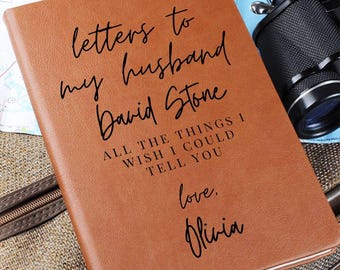 letters to
my husband
David Stone
ALL THE THINGS I
WISH I COULD
TELL YOU
love,
Olivia